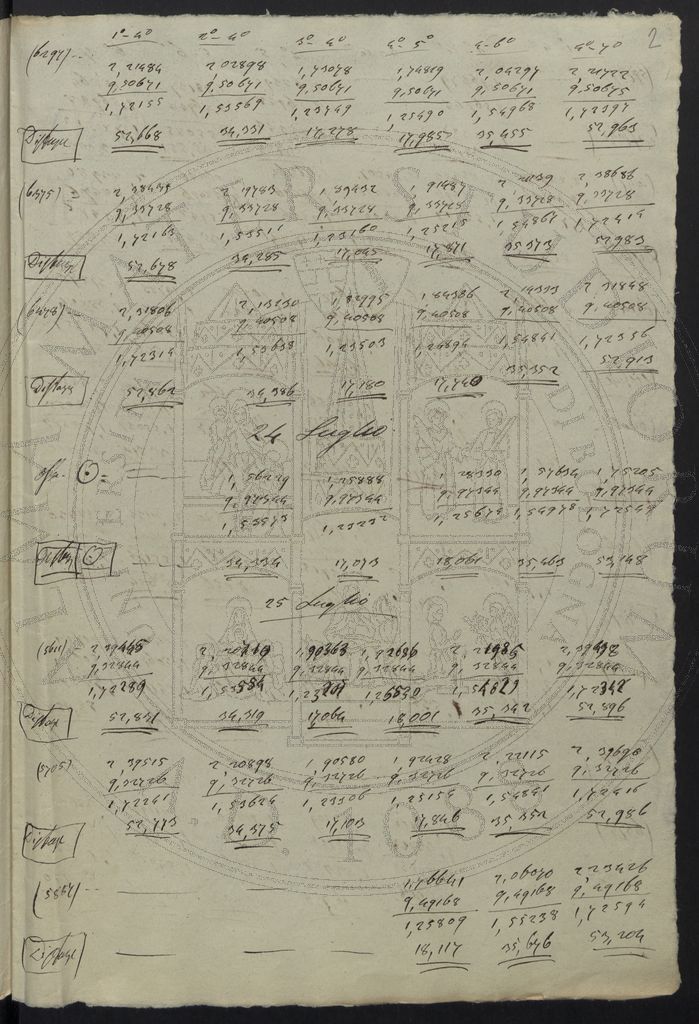 1º–4º 2º–4º 3º–4º 4º–5º 4–6º 4º–7º 2
(6297)
2,21484 2,02898 1,73078 1,74819 2,04297 2,21722
9,50671 9,50671 9,50671 9,50671 9,50671 9,50675
1,72155 1,53569 1,23749 1,25490 1,54968 1,72397
Distanze 52,668 34,331 17,278 17,985 35,455 52,963
(6375)
2,38435 2,19783 1,89432 1,91487 2,21139 2,38686
9,33728 9,33728 9,33728 9,33728 9,33728 9,33728
1,72163 1,53511 1,23160 1,25215 1,54867 1,72414
Distanze 52,678 34,285 17,045 17,871 35,373 52,983
(6478)
2,31806 2,13130 1,82995 1,84386 2,14333 2,31848
9,40508 9,40508 9,40508 9,40508 9,40508 9,40508
1,72314 1,53638 1,23503 1,24894 1,54841 1,72356
Distanze 52,862 34,386 17,180 17,740 35,352 52,913
24 Luglio
☉
1,56029 1,25888 1,28330 1,57634 1,75205
9,97344 9,97344 9,97344 9,97344 9,97344
1,53373 1,23232 1,25674 1,54978 1,72549
Distanz ☉ 34,334 17,073 18,061 35,463 53,148
25 Luglio
(5611)
2,39445 2,20710 1,90363 1,92686 2,21985 2,39498
9,32844 9,32844 9,32844 9,32844 9,32844 9,32844
1,72289 1,53554 1,23207 1,25530 1,54829 1,72342
Distanz 52,831 34,319 17,064 18,001 35,342 52,896
(5705)
2,39515 2,20898 1,90580 1,92428 2,22115 2,39690
9,32726 9,32726 9,32726 9,32726 9,32726 9,32726
1,72241 1,53624 1,23306 1,25154 1,54841 1,72416
Distanz 52,773 34,375 17,103 17,846 35,352 52,986
(5827)
1,76641 2,06070 2,23426
9,49168 9,49168 9,49168
1,25809 1,55238 1,72594
Distanze 18,117 35,676 53,204